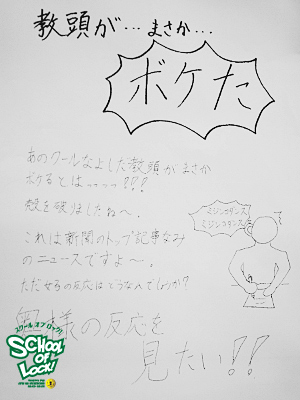 教頭が…まさか…
ボケた
あのクールなよしした教頭がまさか
ボケるとはーーーっ???
殻を破りましたねへ。
これは新聞のトップ記事なみ
のニュースですよ〜。
ミジンコダンス
ミジンコダンス
奥様の反応を
見たい!!
スクール オブ ロック!
SCHOOL
OF
LOCK!